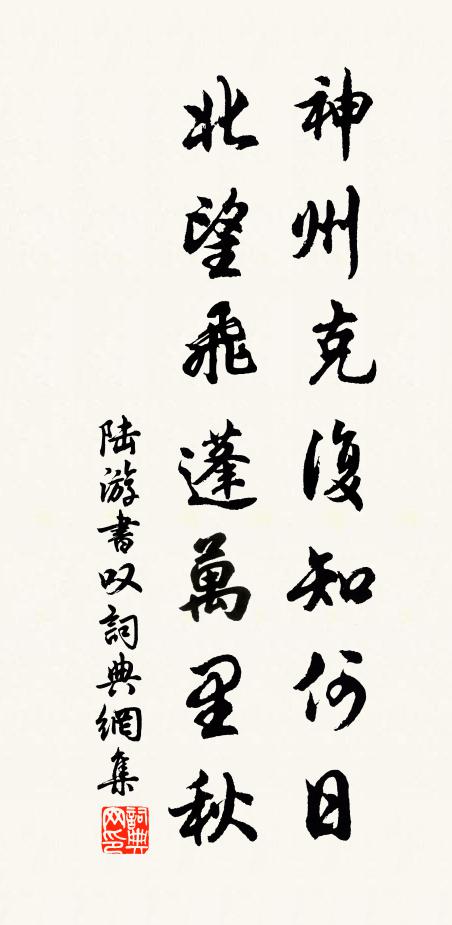 神州克復知何日
北望飛蓬萬里秋
陆游書叹詞典網集
詞典
网印